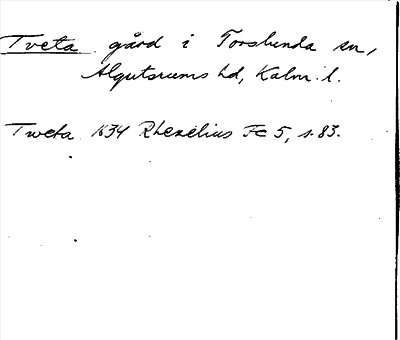 Tveta gård i Torslunda sn,
Algutsrums hd, Kalm. l.
Tweta 1634 Rhezelius Fc 5, s. 83.